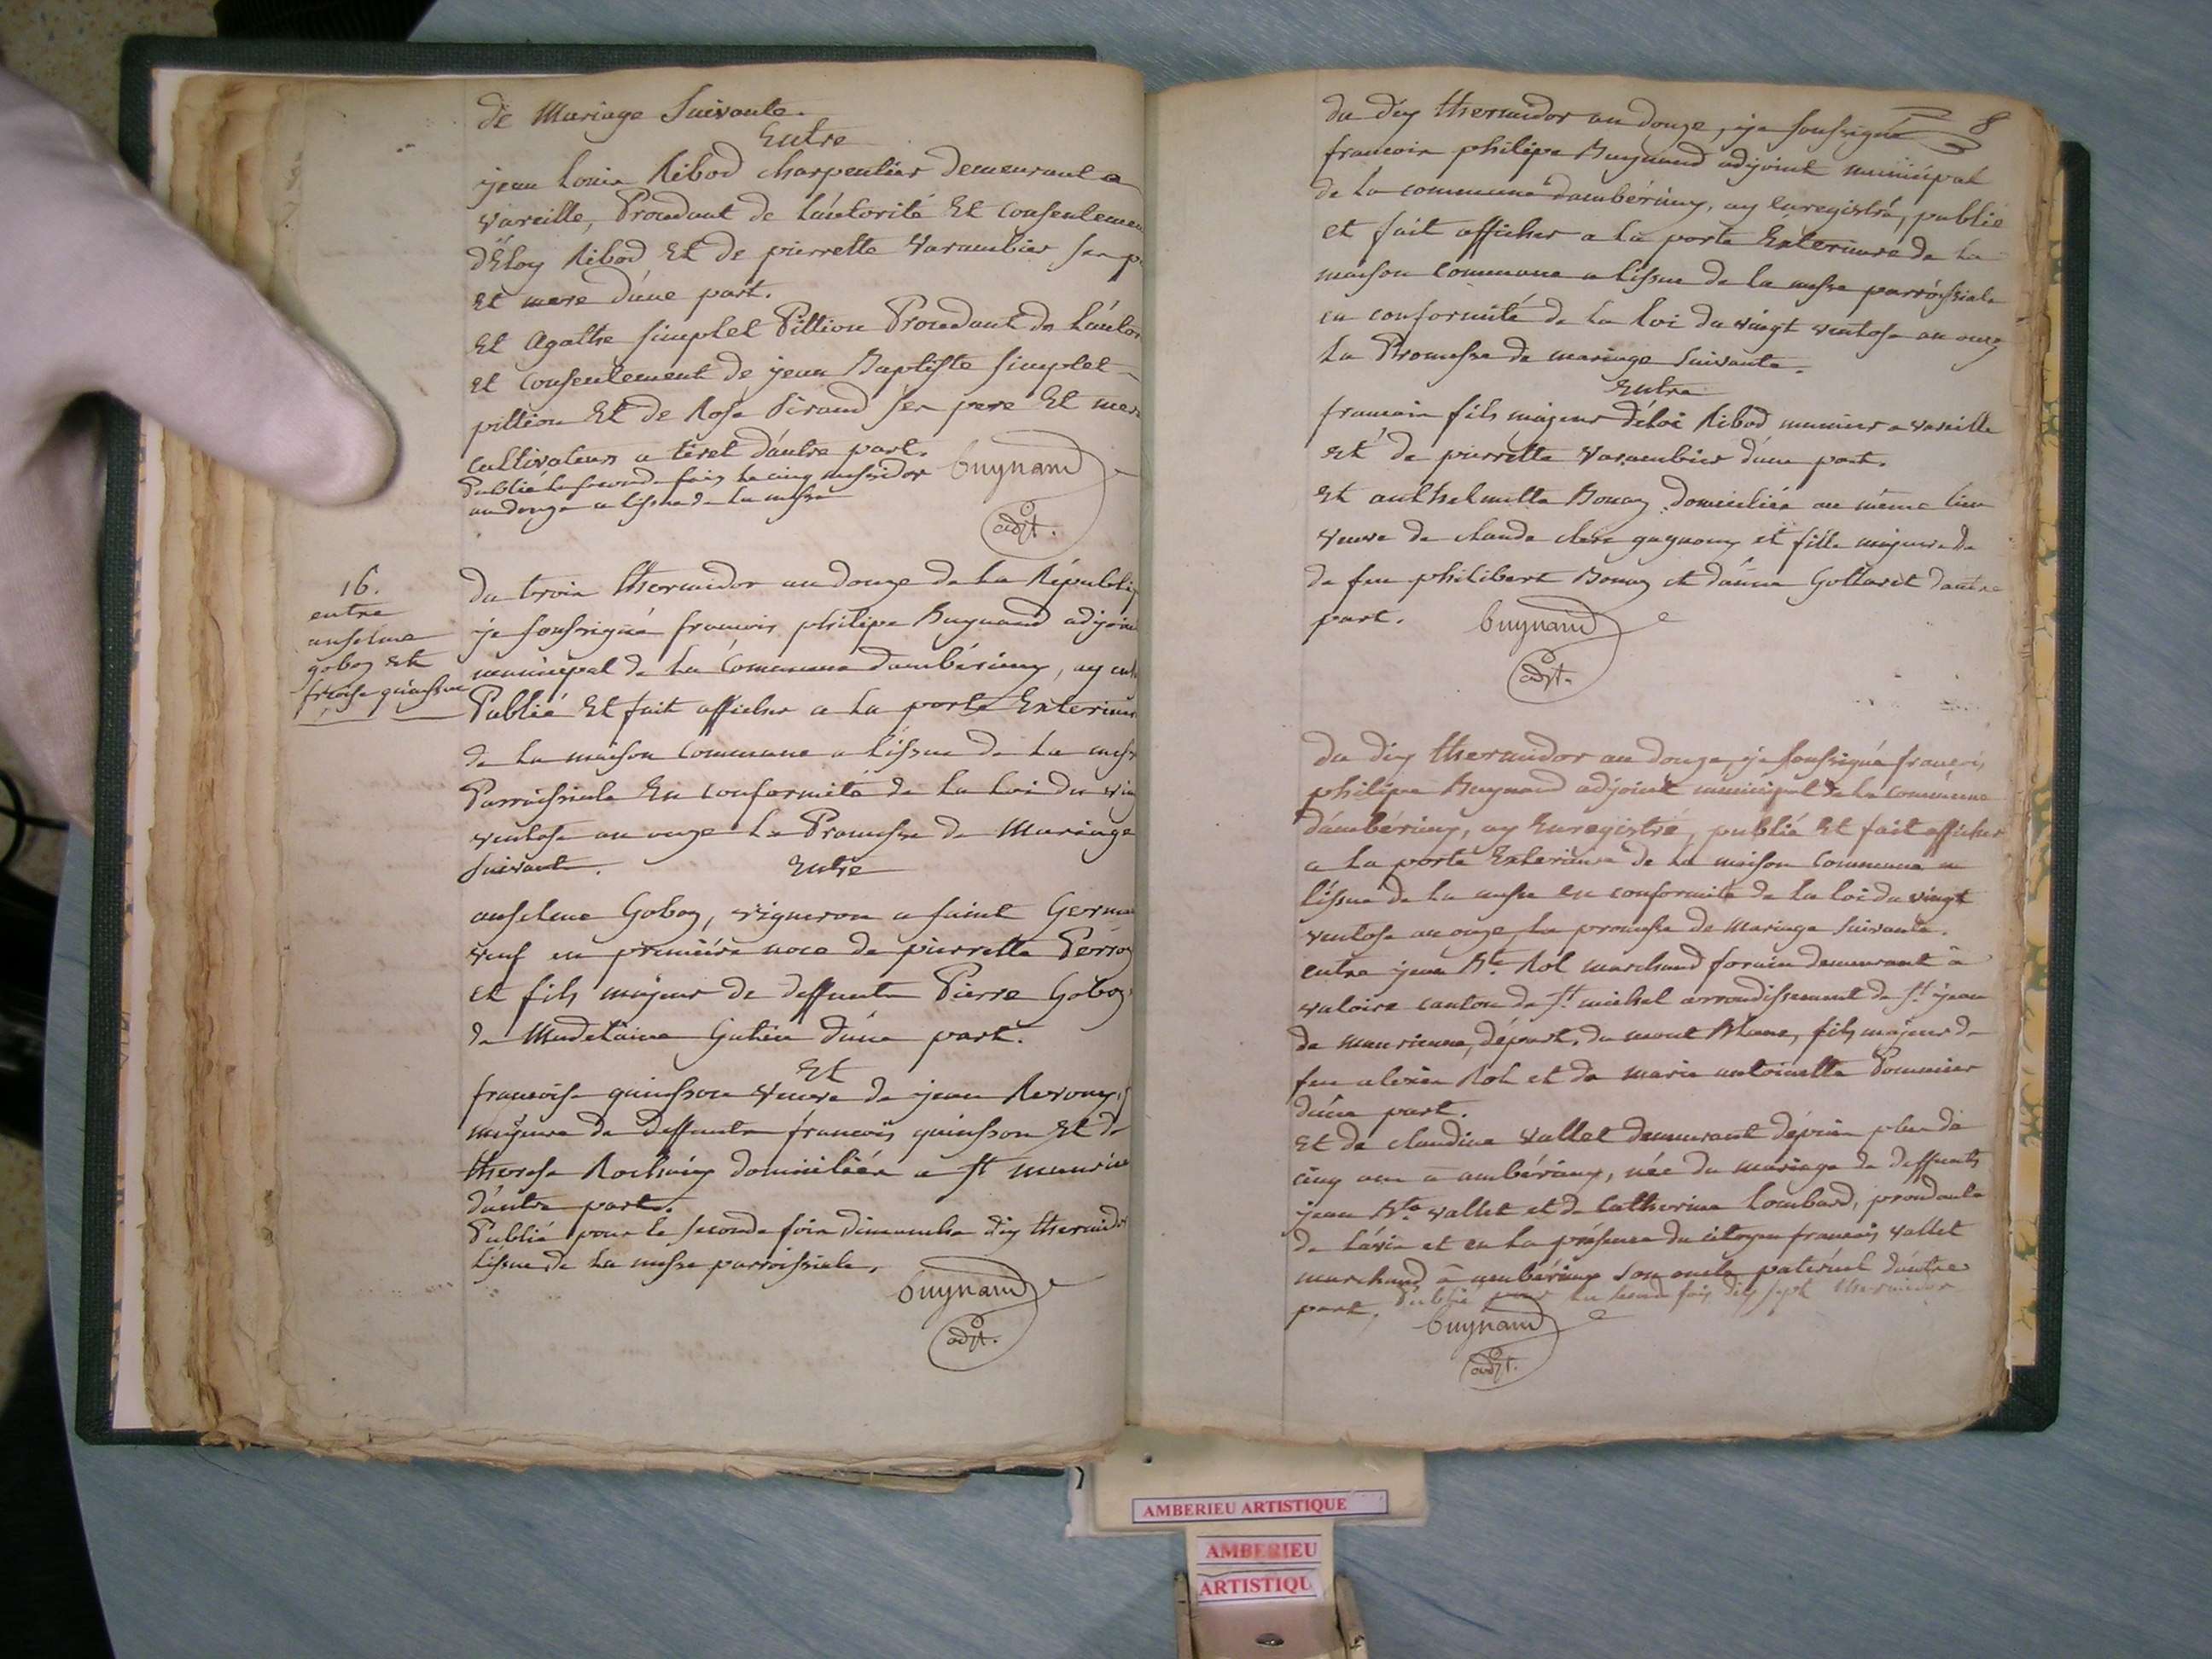 de Mariage Suivante.
Entre
jean Louis Ribod charpentier demeurant a
vareille, Procedant de l'autorité Et consentemen
d'Eloy Ribod Et de pierrette Varambier ses p
Et mere d'une part.
Et Agathe simplet Pittion Procedant de l'autor
et Consentement de jean Baptiste simplet
pittion Et de Rose Piraud ses pere Et mere
cultivateurs a tiret d'autre part.
Publié la seconde fois le cinq messidor
an douze a l'issue de la messe
buynand
adjt.
16.
entre
anselme
goboz Et
frçoise quinsson
du trois thermidor an douze de la Républiq
je soussigné francois philipe Buynand adjoin
municipal de la Commune d'ambérieux, ay
Publié Et fait afficher a la porte Exterieur
de la maison commune a l'issue de la mess
Parroissiale En conformité de la Loi du vin
ventose an onze La Promesse de Mariage
suivante.
Entre
anselme Goboz, vigneron a saint Germa
veuf en premiére noce de pierrette Perroz
et fils majeur de deffunts Pierre Goboz
de Madelaine d'une part.
Et
francoise quinsson veuve de jean
majeure de deffunts francois quinsson Et de
therese domiciliée a St maurice
d'autre part.
Publié pour la seconde fois dimanche dix thermido
l'issue de la messe parroissiale.
buynand
adjt.
8
du dix thermidor an douze, je soussigné
francois philipe Buynand adjoint municipal
de la commune d'ambérieux, ay Enregistré, publié
et fait afficher a la porte Exterieure de la
maison commune a l'issue de la messe parroissiale
en conformité de la loi du vingt ventose an onze
La Promesse de mariage suivante.
Entre
francois fils majeur d'éloi Ribod meunier a vareille
et de pierrette Varambier d'une part.
Et anthelmette Bonaz domiciliée au même lieu
veuve de claude clerc gagnoux et fille majeure de
de feu philibert Bonaz et d'anne Gottaret d'autre
part.
buynand
adjt.
du dix thermidor an douze, je soussigné francois
philipe Buynand adjoint municipal de la commune
d'ambérieux, ay Enregistré, publié Et fait afficher
a la porte Exterieure de la maison commune a
l'issue de la messe en conformité de la loi du vingt
ventose an onze, la promesse de Mariage suivante.
entre jean Bte Rol marchand forain demeurant à
valoire canton de St michel arrondissement de St jean
de maurienne, départ. du mont Blanc, fils majeur de
feu alexis Rol et de marie antoinette Pommier
d'une part.
Et de claudine vallet demeurant depuis plus de
cinq ans a ambérieux, née du mariage de deffunts
jean Bte vallet et de Catherine Lombard, procedante
de l'avis et en la présence du citoyen francois vallet
marchand à ambérieux son oncle paternel d'autre
part. Publié pour la seconde fois dix sept thermidor
buynand
adjt.
AMBERIEU ARTISTIQUE
AMBERIEU
ARTISTIQU